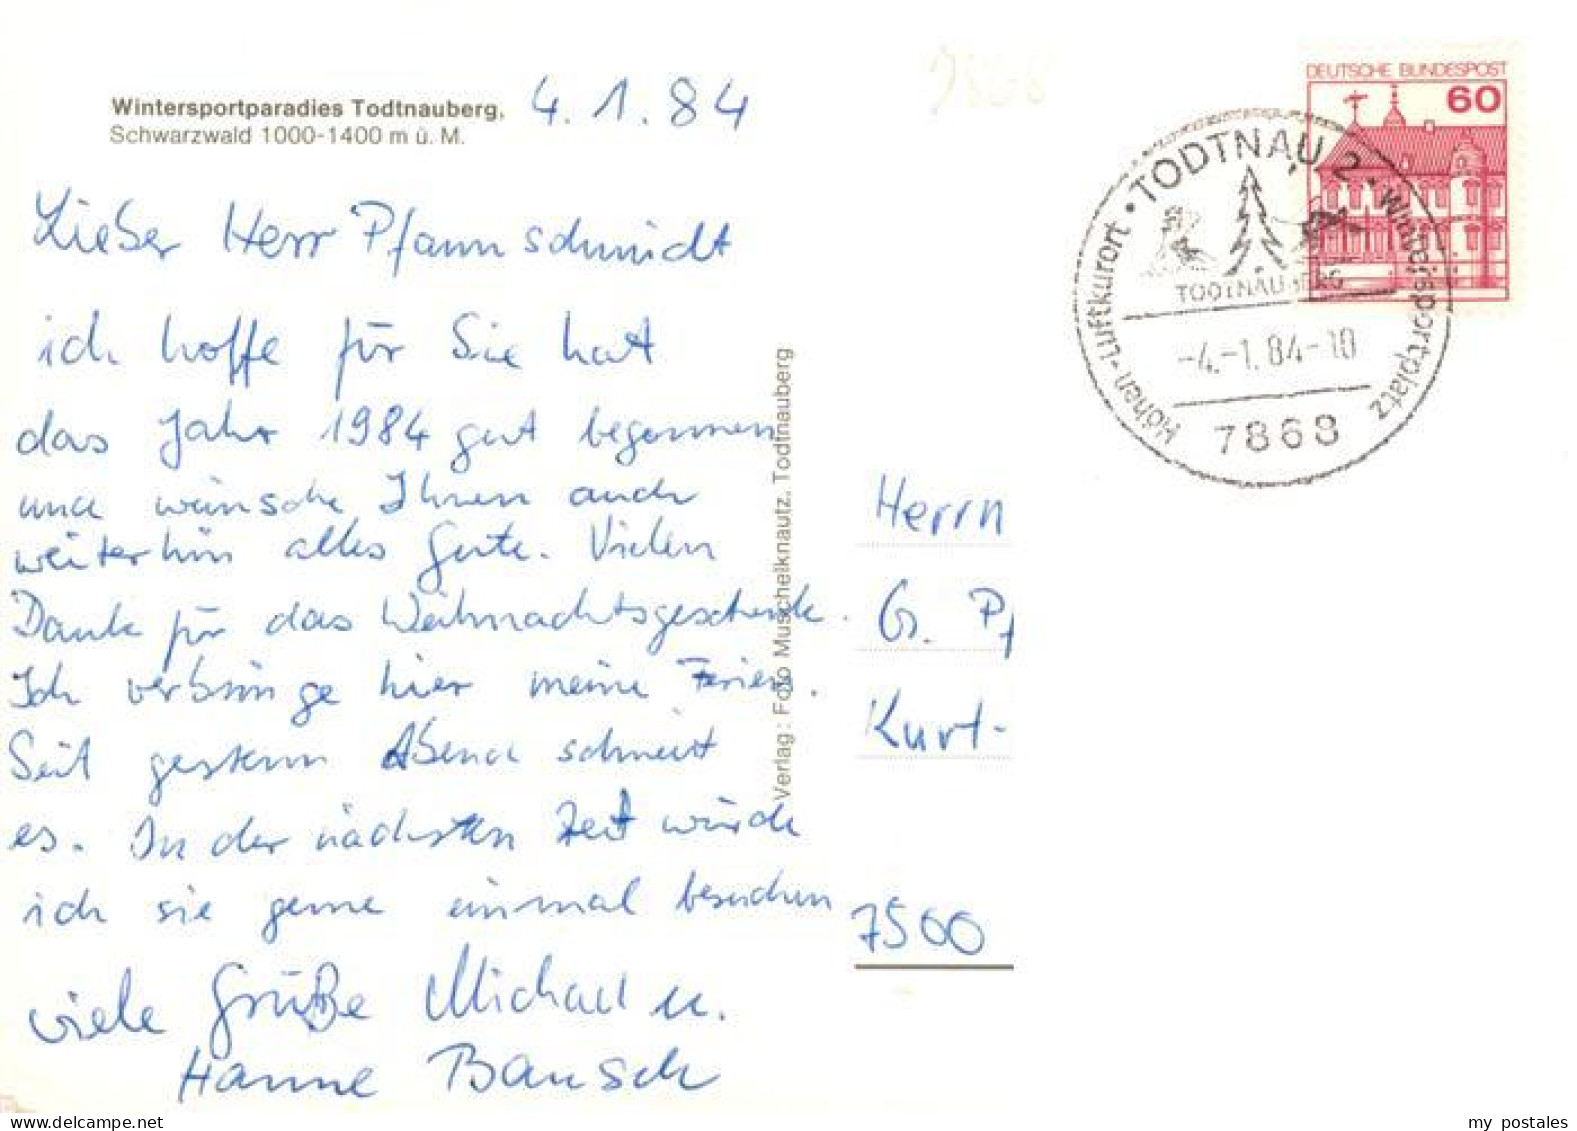 Wintersportparadies Todtnauberg,
Schwarzwald 1000-1400 m ü. M.
4.1.84
Lieber Herr Pfannschmidt
ich hoffe für Sie hat
das Jahr 1984 gut begonnen
und wünsche Ihnen auch
weiterhin alles Gute. Vielen
Dank für das Weihnachtsgeschenk.
Ich verbringe hier meine Ferien.
Seit gestern Abend schneit
es. In der nächsten Zeit würde
ich sie gerne einmal besuchen
viele Grüße Michael u.
Hanne Bausch
Verlag: Foto Muschelknautz, Todtnauberg
DEUTSCHE BUNDESPOST
60
TODTNAU 2 · Wintersportplatz
Höhen-Luftkurort ·
TODTNAUBERG
-4.-1.84-10
7868
Herrn
G. Pf
Kurt-
7500
my postales